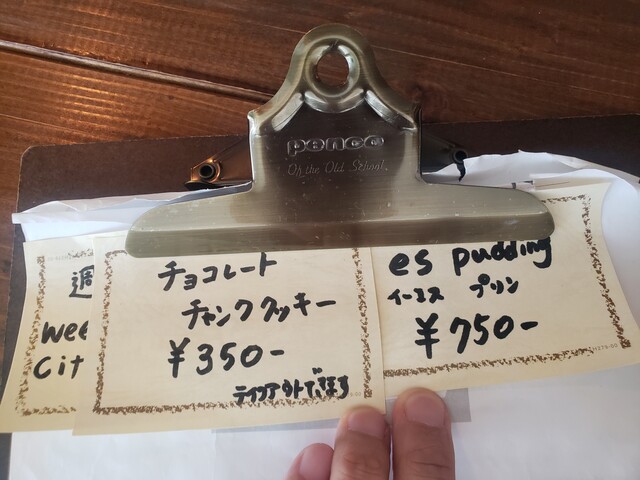 penco
Of the Old School
週
wee
cit
チョコレート
チャンククッキー
¥350-
テイクアウトできます
es pudding
イーエス プリン
¥750-